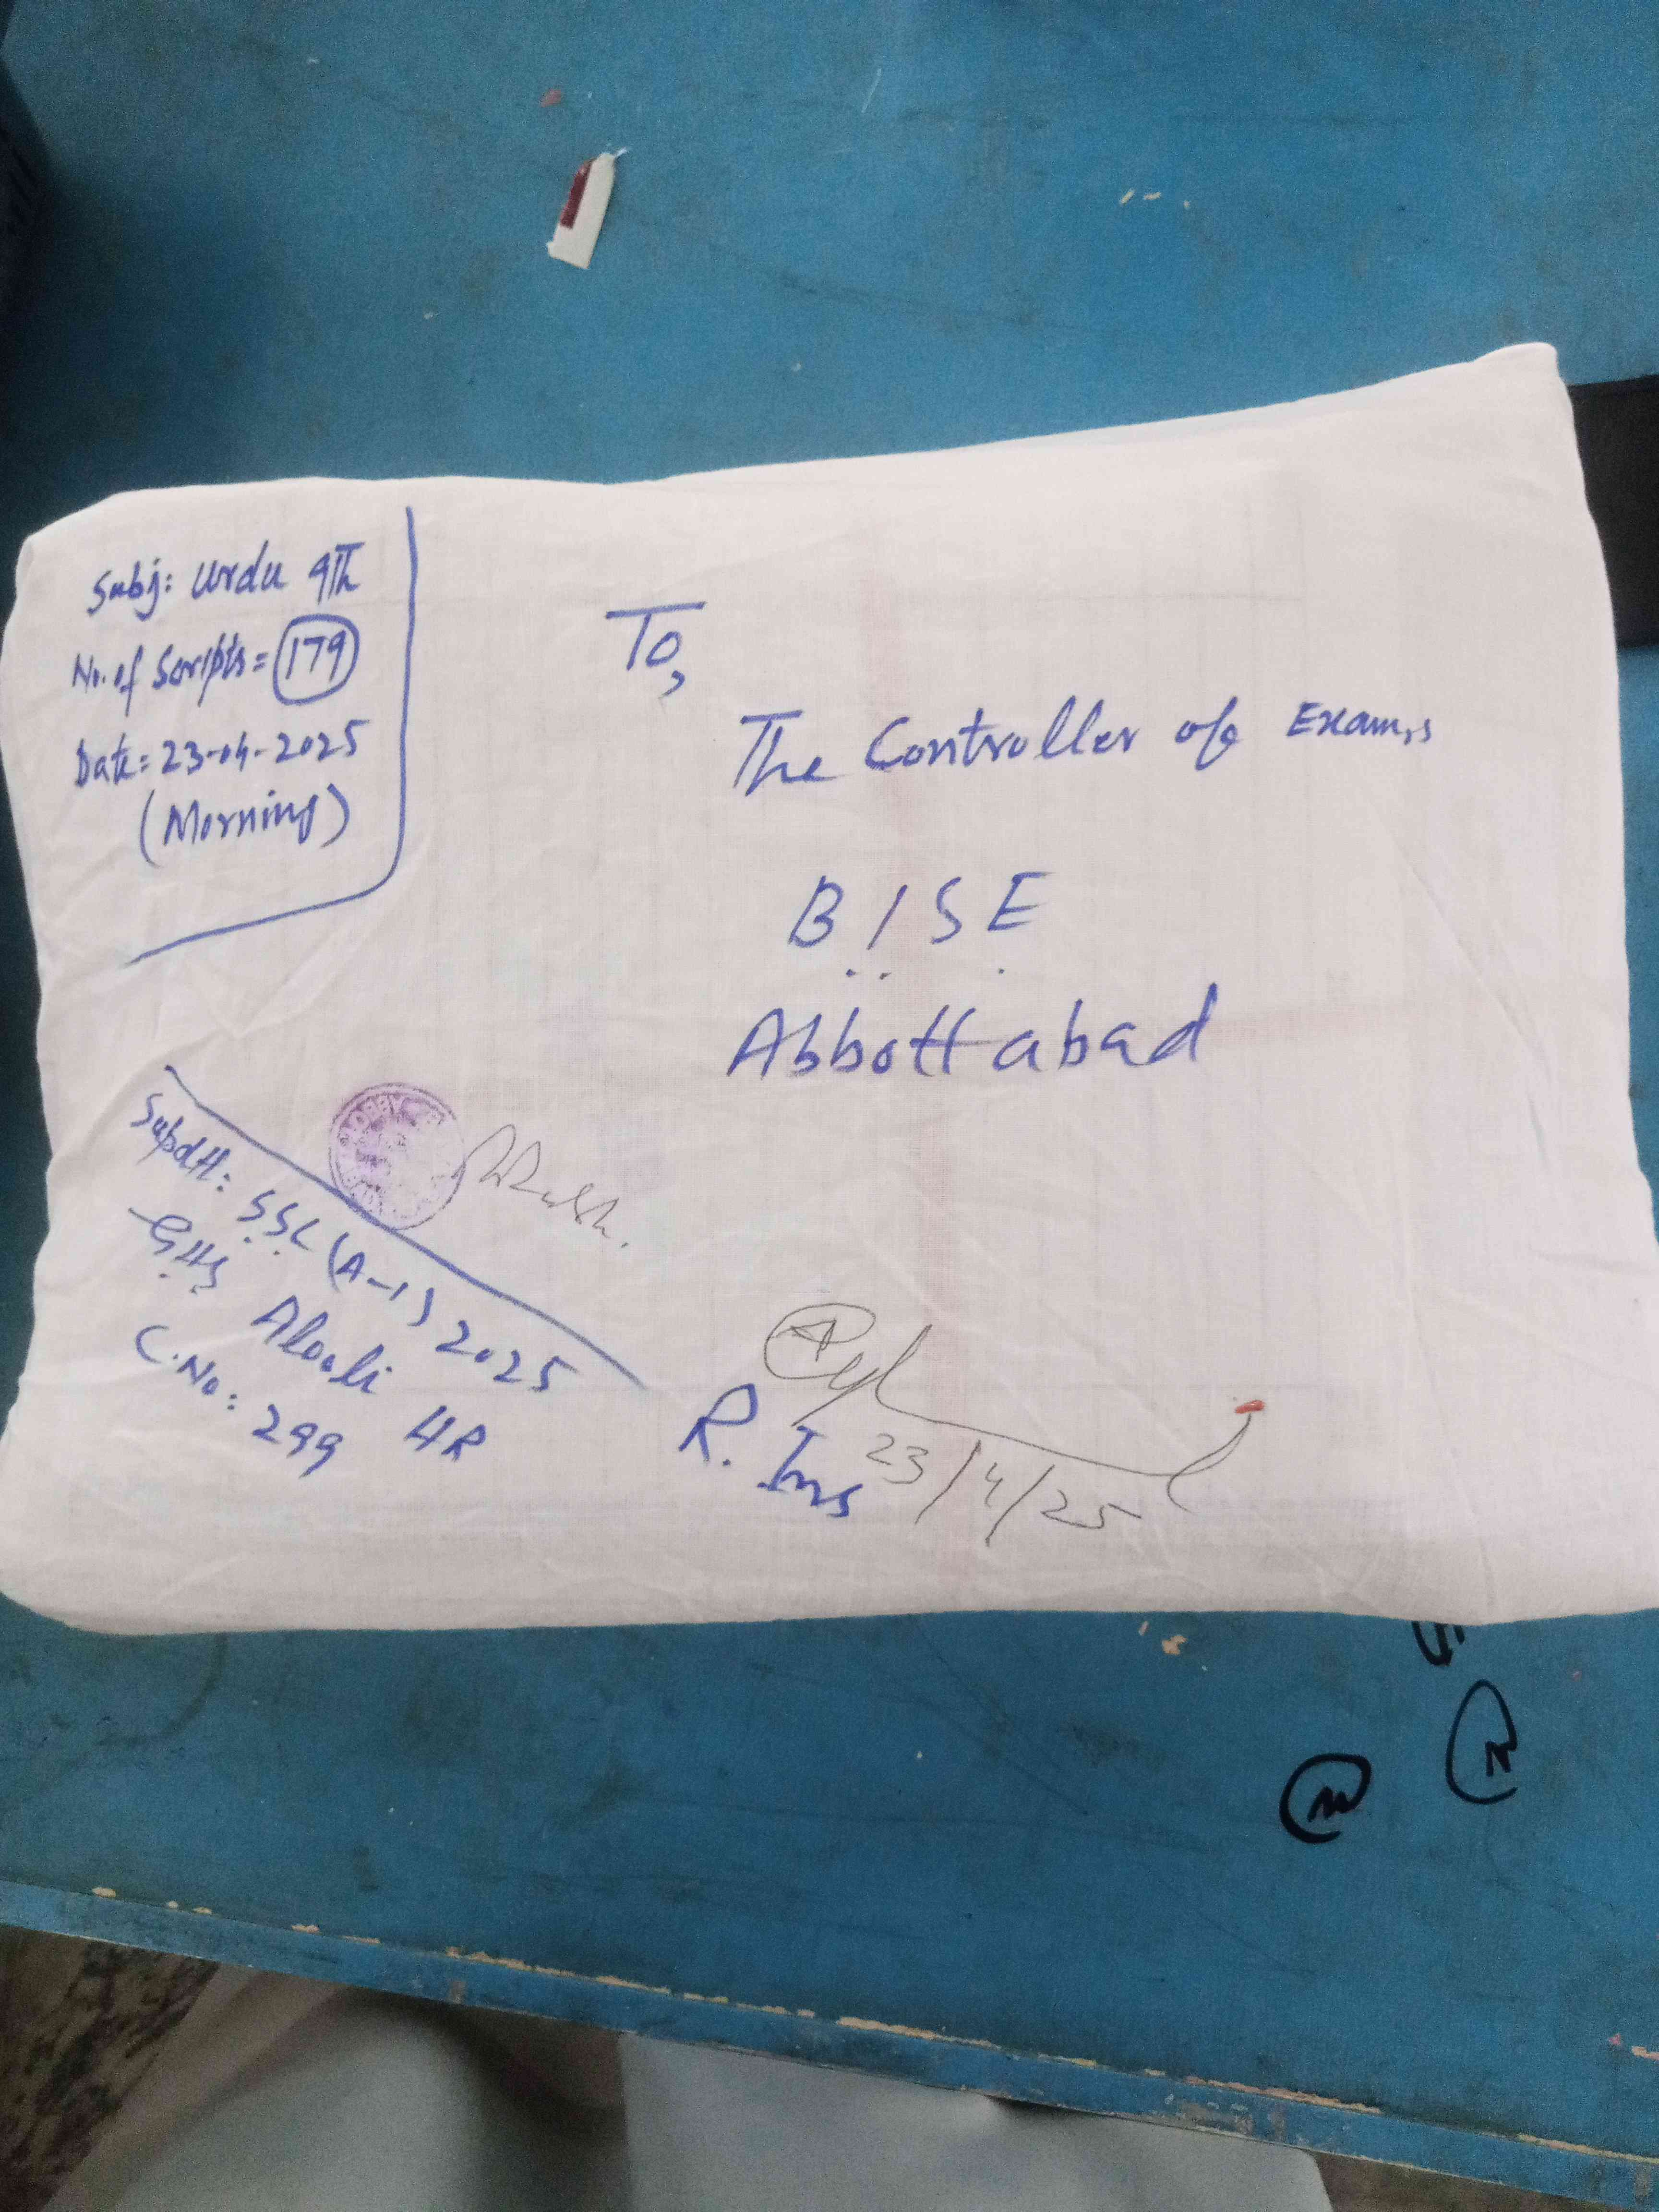 Subj: Urdu 9Th
No. of Scripts = 179
Date: 23-04-2025
(Morning)
To,
The Controller of Exam,s
BISE
Abbottabad
Supdtt:
SSC (A-1) 2025
GHS Aloali HR
C.No: 299
R. Ins
23/4/25